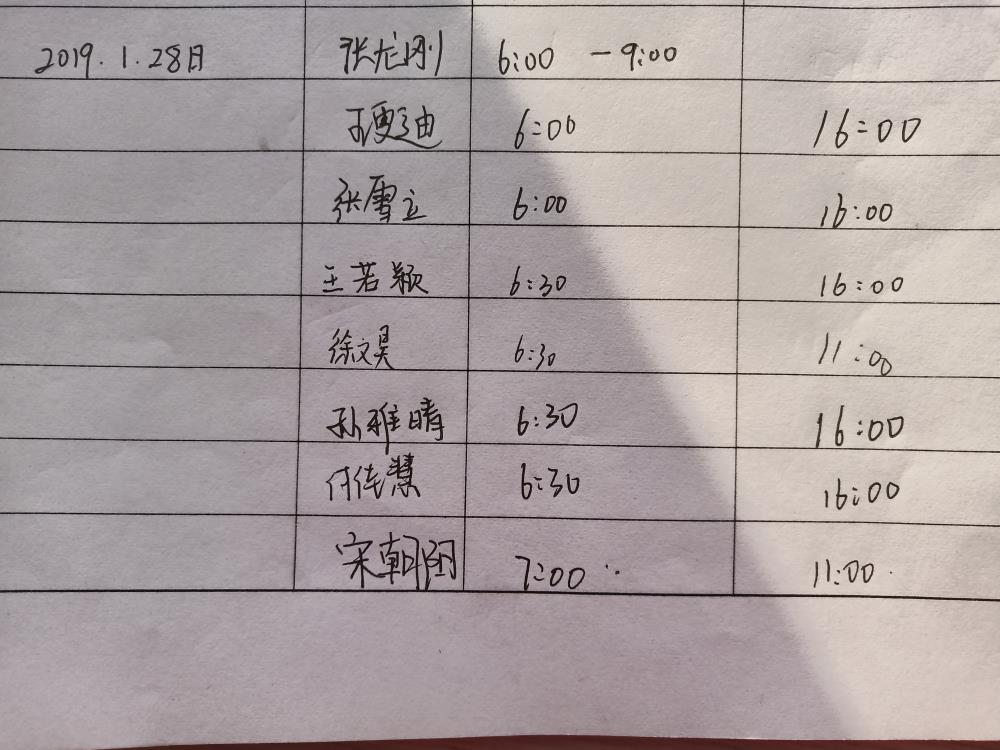 2019.1.28日 张龙刚 6:00 -9:00
王更迪 6:00 16:00
张雪立 6:00 16:00
王若颖 6:30 16:00
徐文昊 6:30 11:00
孙雅晴 6:30 16:00
付佳慧 6:30 16:00
宋朝阳 7:00 11:00